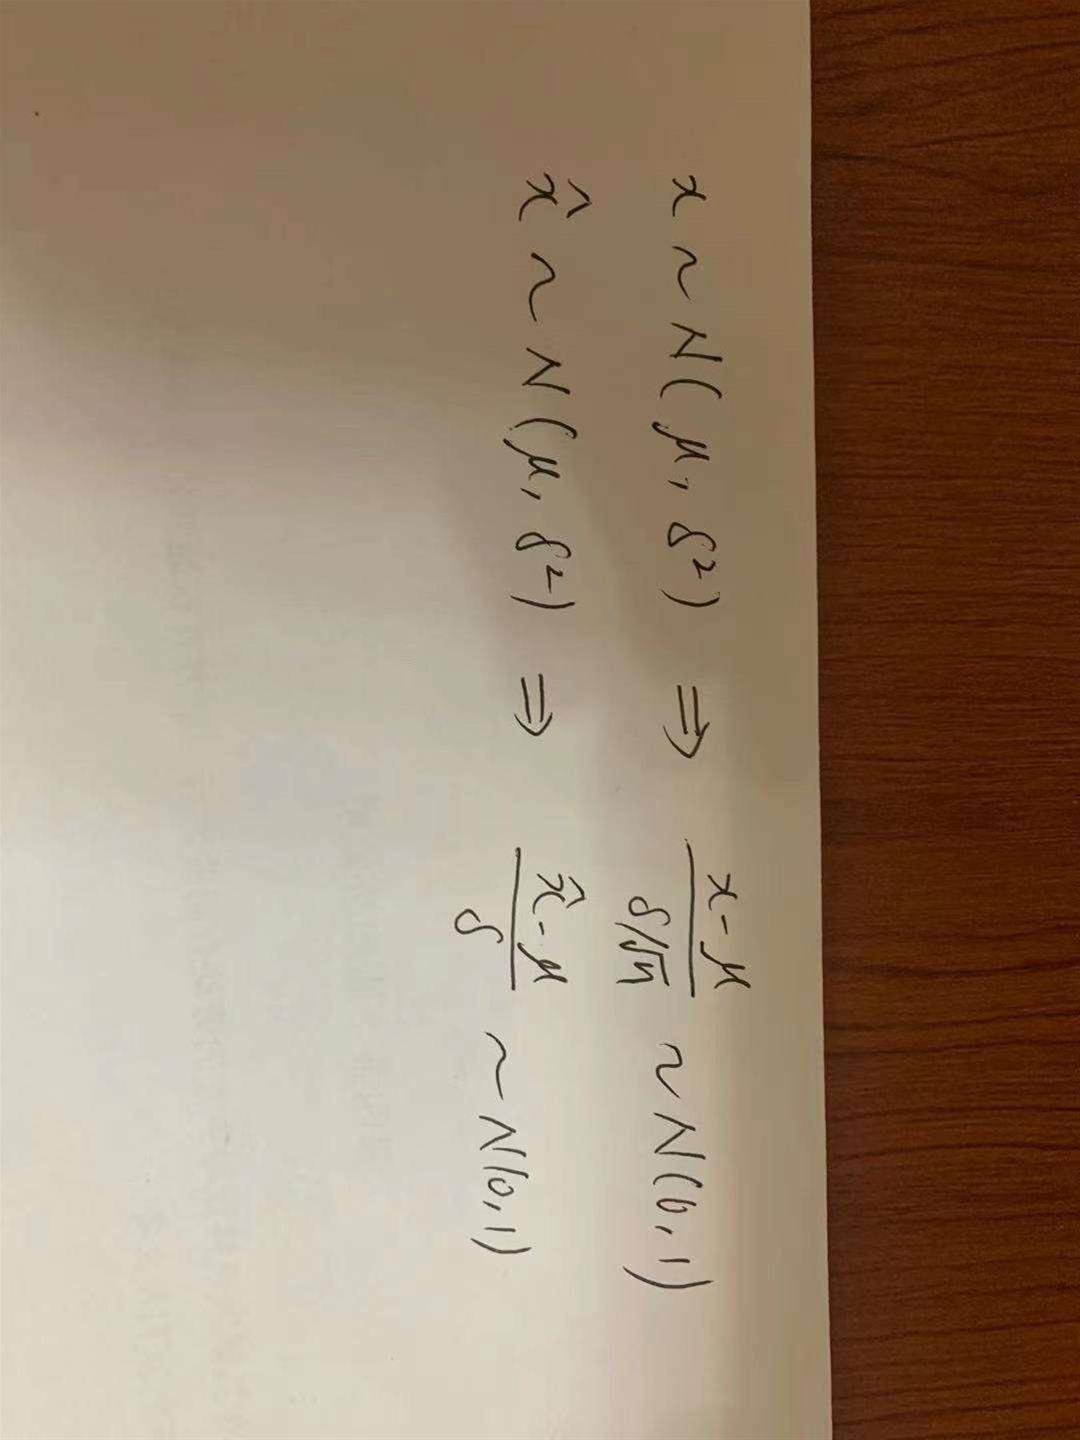 x ~ N(μ, δ²) ⇒ (x-μ)/(δ/√n) ~ N(0,1)
x̂ ~ N(μ, δ²) ⇒ (x̂-μ)/δ ~ N(0,1)